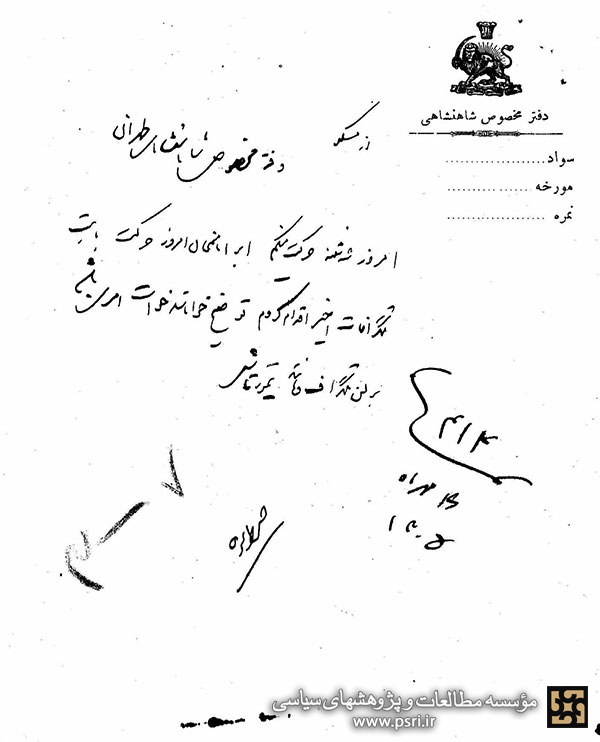 دفتر مخصوص شاهنشاهی
سواد
مورخه
نمره
از مسکو
دفتر مخصوص شاهنشاهی طهران
امروز شنبه حرکت میکنم ایرانشمال امروز حرکت بابت
تلگرافات اخیر اقدام کردم توضیح خواهند خواست امری باشد
برلن تلگراف فرمائید تیمورتاش
۴۱۴
۱۵ مهرماه
۱۳۰۵
مؤسسه مطالعات و پژوهشهای سیاسی
www.psri.ir